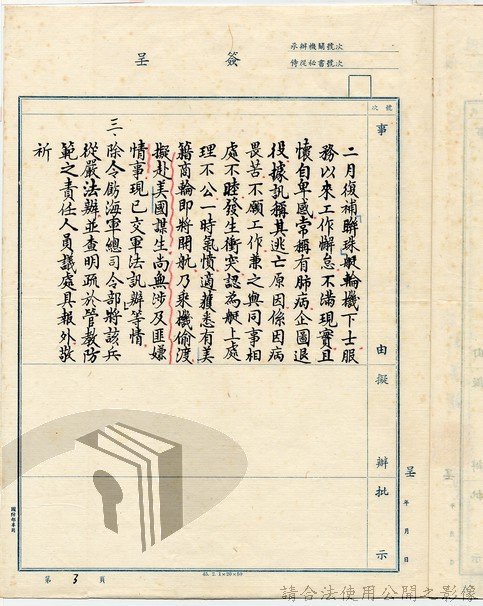 承辦機關號次
侍從秘書號次
簽呈
號次
事由擬辦批示
二月復補聯珠艇輪機下士服
務以來工作懈怠不滿現實且
懷自卑感常稱有肺病企圖退
役據訊稱其逃亡原因係因病
畏苦不願工作兼之與同事相
處不睦發生衝突認為艇上處
理不公一時氣憤適獲悉有美
籍商輪即將開航乃乘機偷渡
擬赴美國謀生尚無涉及匪嫌
情事現已交軍法訊辦等情
三、除令飭海軍總司令部將該兵
從嚴法辦並查明疏於管教防
範之責任人員議處具報外敬
祈
呈
年月日
第3頁
請合法使用公開之影像